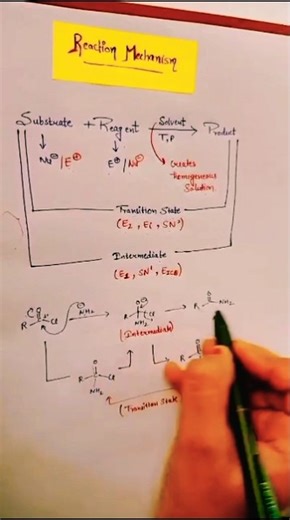 Reaction Mechanism
Substrate + Reagent Solvent Product
T,P
Nu⊖/E⊕ E⊕/Nu⊖ creates
homogeneous
Solution
Transition State
(E2, Ei, SN²)
Intermediate
(E1, SN¹, E1CB)
R Cl ⊖NH2 R Cl R NH2
NH2
(Intermediate)
R Cl R
NH2
(Transition State